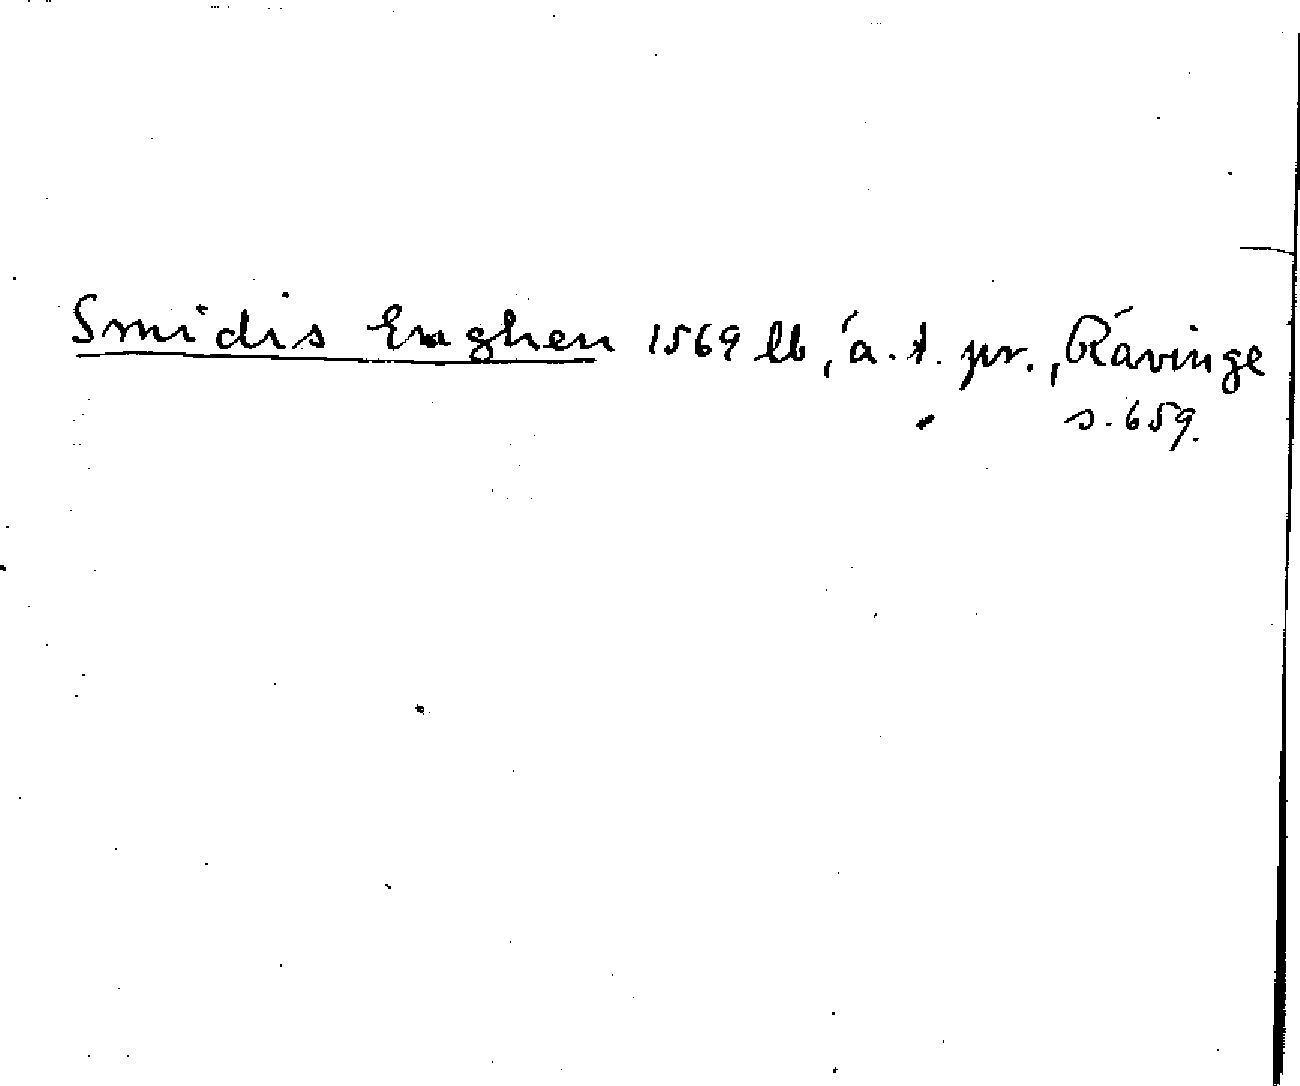 Smidis Enghen 1569 lb, á.t. pr., Rávinge
s. 659.